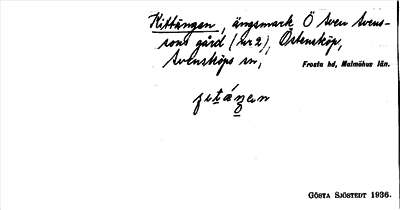 Kittängen, ängsmark Ö Sven Svens-
sons gård (nr 2), Östensköp,
Svensköps sn,
Frosta hd, Malmöhus län.
GÖSTA SJÖSTEDT 1936.